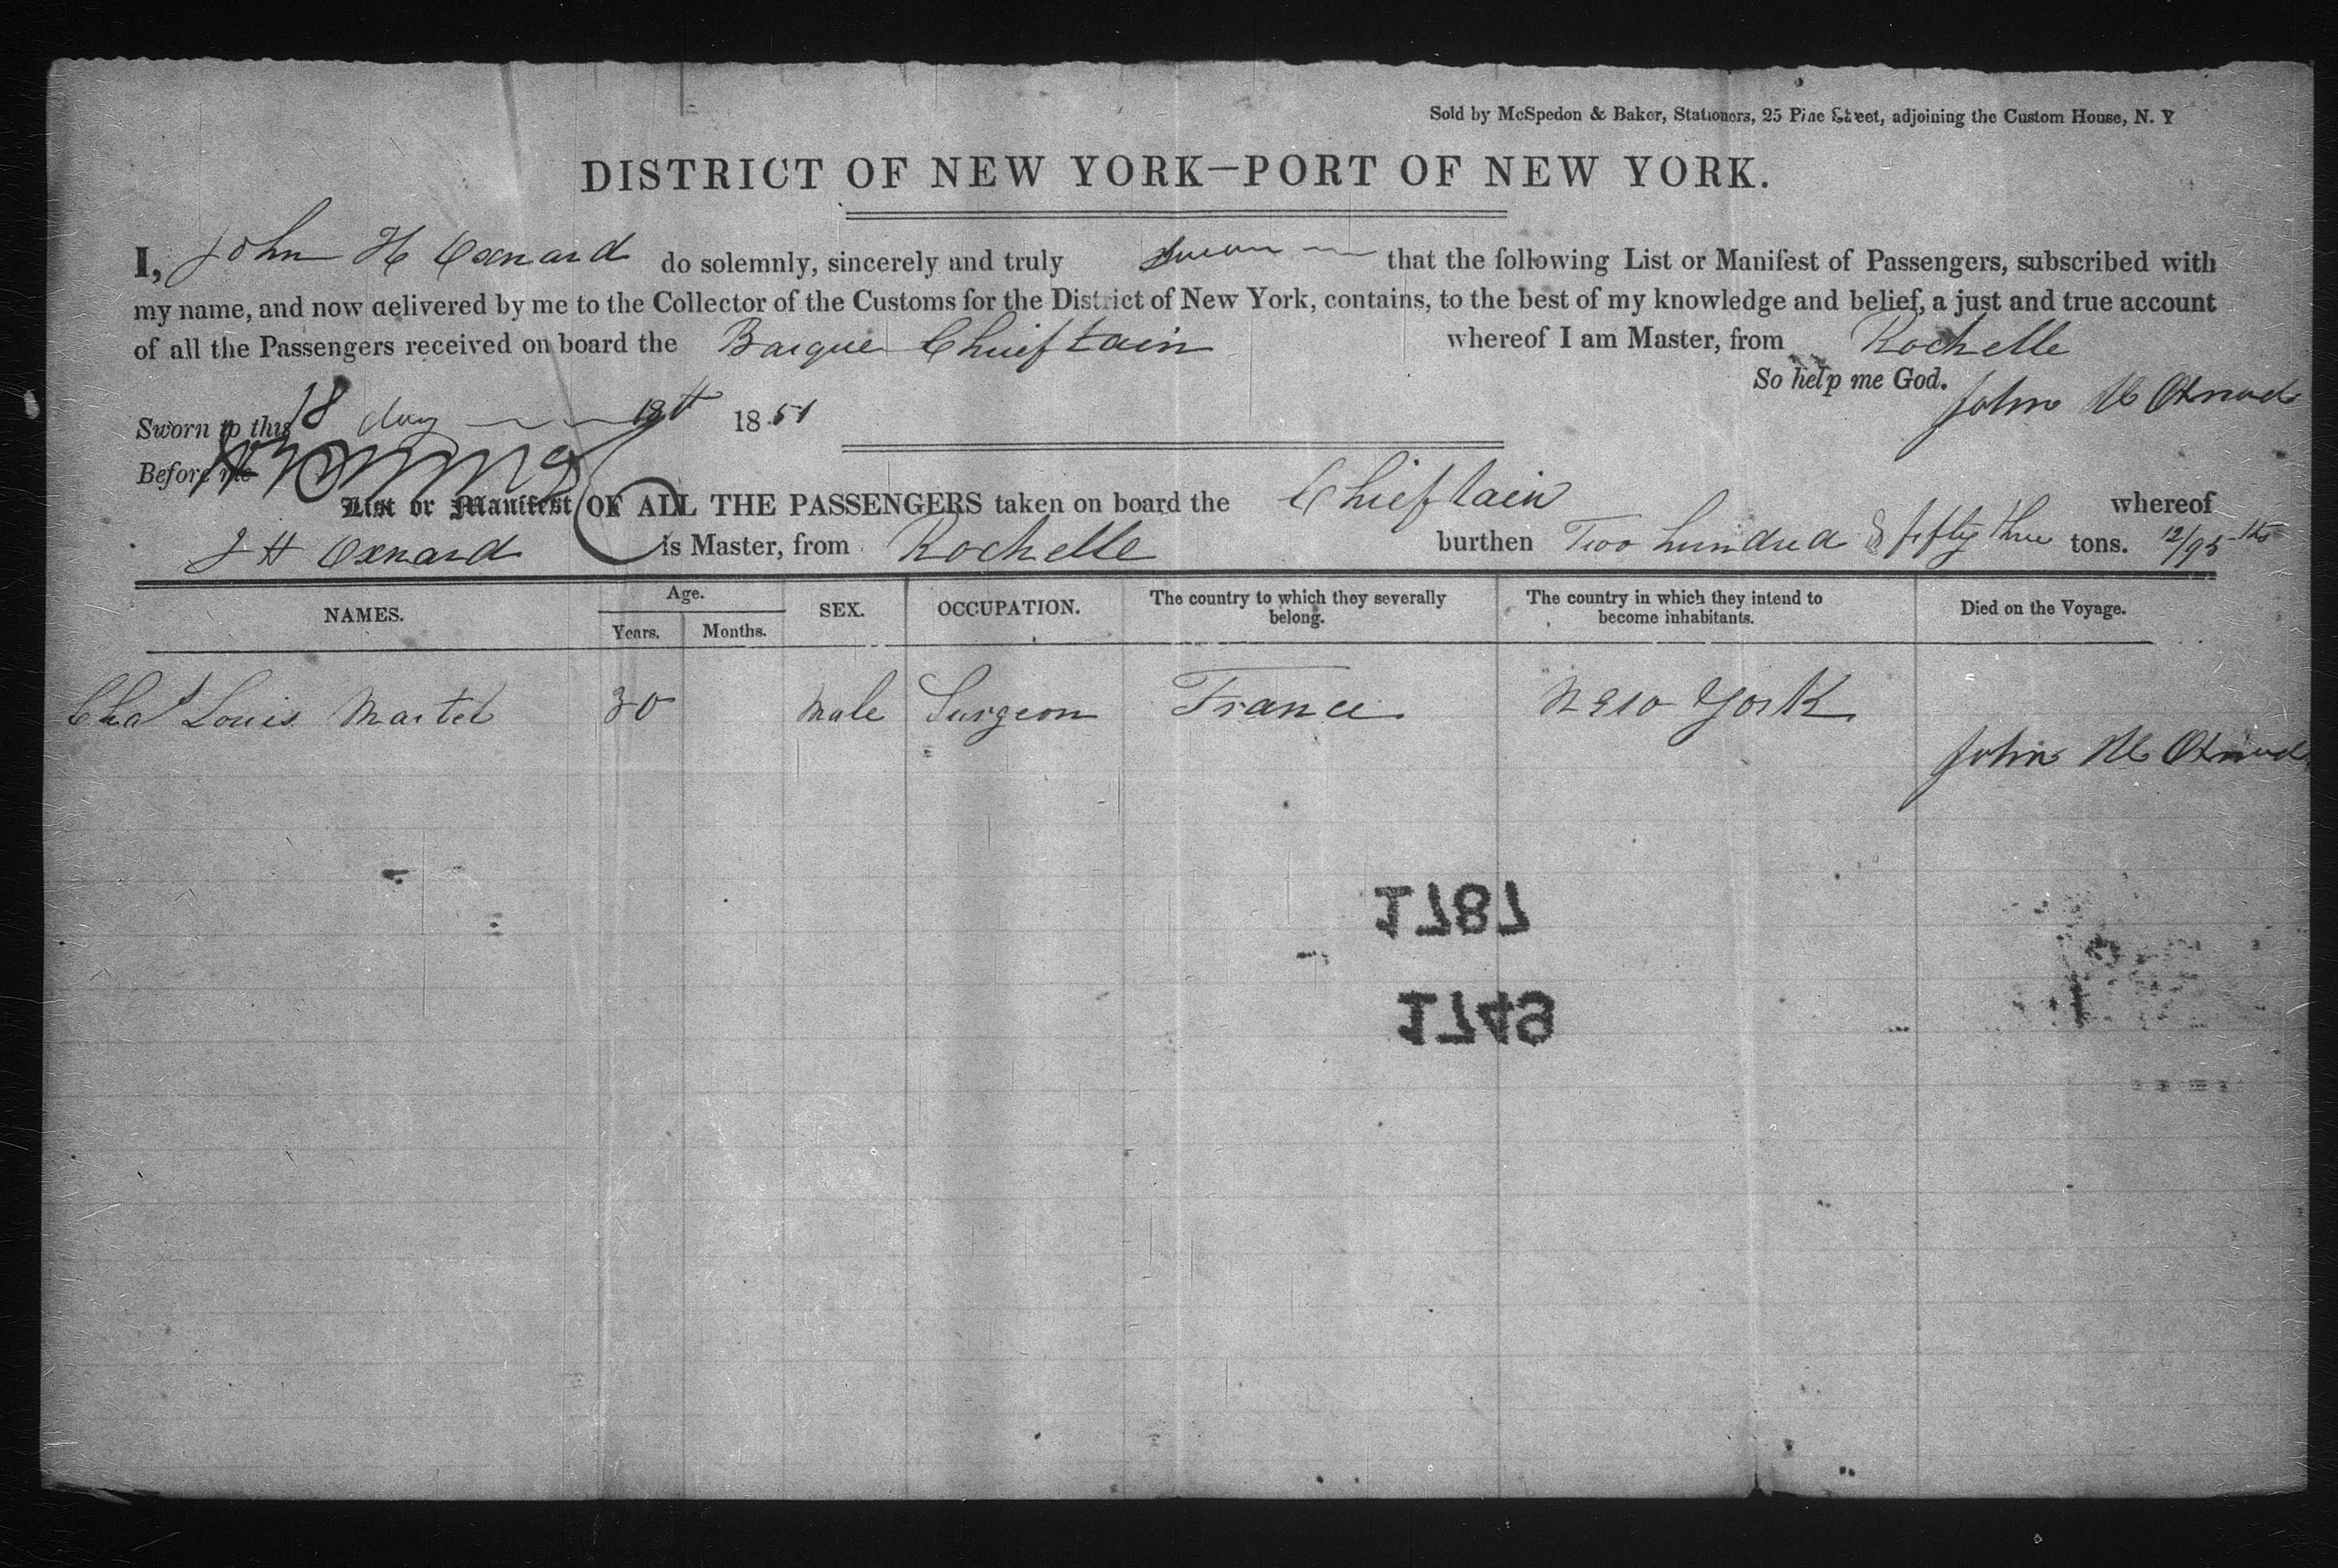 Sold by McSpedon & Baker, Stationers, 25 Pine Street, adjoining the Custom House, N. Y
DISTRICT OF NEW YORK—PORT OF NEW YORK.
I, John H Oxnard do solemnly, sincerely and truly swear that the following List or Manifest of Passengers, subscribed with
my name, and now delivered by me to the Collector of the Customs for the District of New York, contains, to the best of my knowledge and belief, a just and true account
of all the Passengers received on board the Barque Chieftain whereof I am Master, from Rochelle
So help me God.
John H Oxnard
Sworn to this 18 1851
Before me
List or Manifest OF ALL THE PASSENGERS taken on board the Chieftain whereof
J H Oxnard is Master, from Rochelle burthen Two hundred & fifty three tons. 12/95ths
NAMES. Age. Years. Months. SEX. OCCUPATION. The country to which they severally belong. The country in which they intend to become inhabitants. Died on the Voyage.
Chas Louis Martel 30 Male Surgeon France New York
John H Oxnard
1787
1749